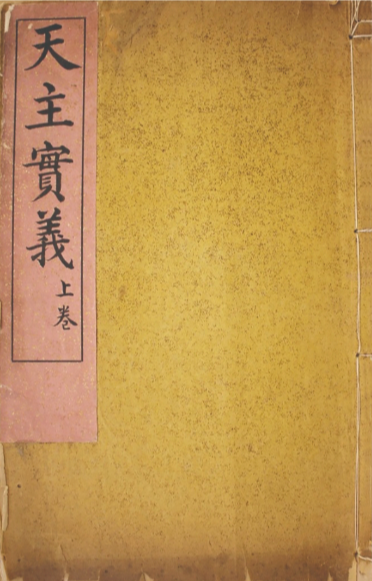 天主實義
上卷